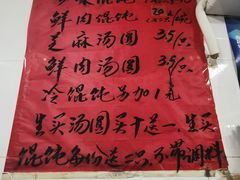 鲜肉馄饨
芝麻汤圆 3.5/只
鲜肉汤圆 3.5/只
冷馄饨另加1元
生买汤圆买十送一.生买
馄饨每份送二只.不带调料